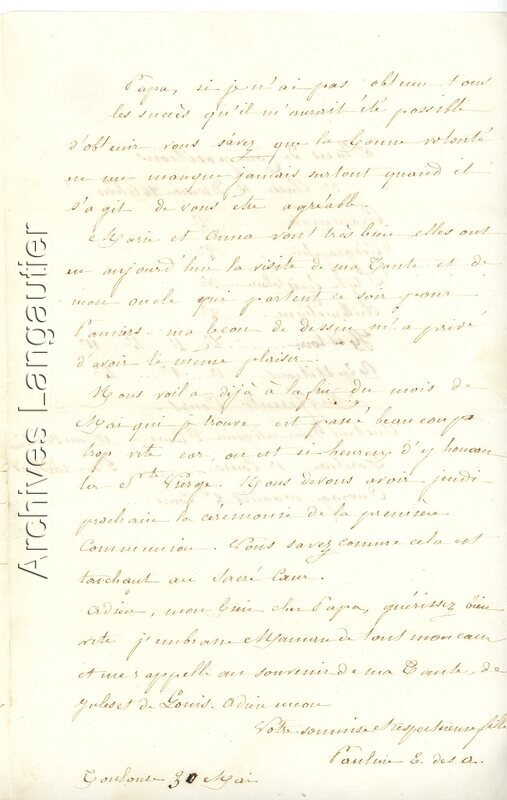 Papa, si je n'ai pas obtenu tous
les succès qu'il m'aurait été possible
d'obtenir vous savez que la bonne volonté
ne me manque jamais surtout quand il
s'agit de vous être agréable.
Marie et Anna vont très bien elles ont
eu aujourd'hui la visite de ma Tante et de
mon oncle qui partent ce soir pour
Pamiers ma leçon de dessin m'a privé
d'avoir le même plaisir.
Nous voila déjà à la fin du mois de
Mai qui je trouve est passé beaucoup
trop vite car, on est si heureux d'y honorer
la Ste Vierge. Nous devons avoir jeudi
prochain la cérémonie de la première
Communion. Vous savez comme cela est
touchant au Sacré Cœur.
Adieu, mon bien cher Papa, guérissez bien
vite j'embrasse Maman de tout mon cœur
et me rappelle au souvenir de ma Tante, de
Jules et de Louis. Adieu encore
Votre soumise et respectueuse fille
Pauline E. des A.
Toulouse 30 Mai
Archives Langautier